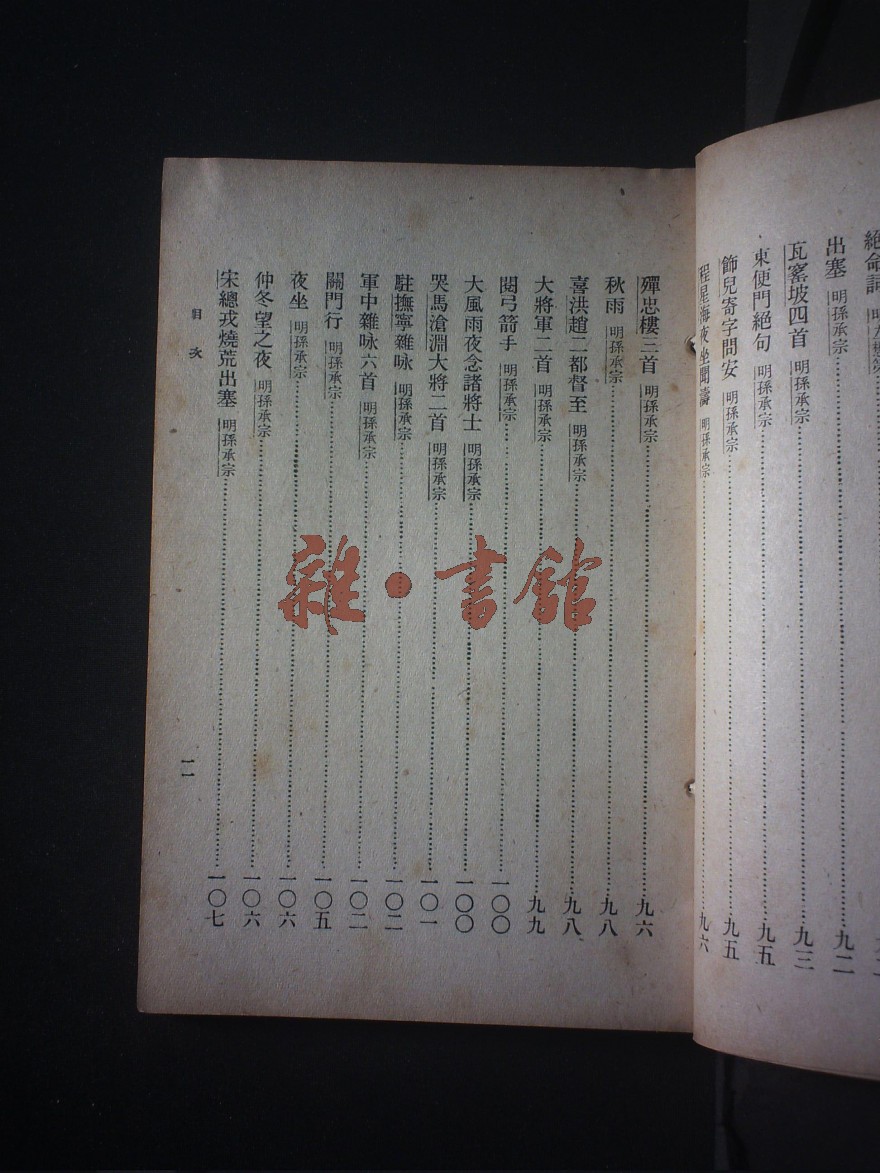 絕命詞
出塞 明孫承宗 九二
瓦窰坡四首 明孫承宗 九三
東便門絕句 明孫承宗 九五
飾兒寄字問安 明孫承宗 九五
程星海夜坐聞濤 明孫承宗 九六
殫忠樓三首 明孫承宗 九六
秋雨 明孫承宗 九八
喜洪趙二都督至 明孫承宗 九八
大將軍二首 明孫承宗 九九
閱弓箭手 明孫承宗 一〇〇
大風雨夜念諸將士 明孫承宗 一〇〇
哭馬滄淵大將二首 明孫承宗 一〇一
駐撫寧雜咏 明孫承宗 一〇二
軍中雜咏六首 明孫承宗 一〇二
關門行 明孫承宗 一〇五
夜坐 明孫承宗 一〇六
仲冬望之夜 明孫承宗 一〇六
宋總戎燒荒出塞 明孫承宗 一〇七
目次
一一
雜·書館